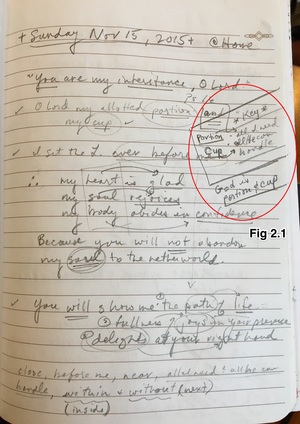 + Sunday Nov 15, 2015 + @ Home
"You are my inheritance, O Lord"
Ps 16
✓ O Lord my allotted portion
my cup
Land
Portion
Cup
* Key *
all I need
all I can
handle
God is
portion & cup
Fig 2.1
✓ I set the L ever before me
∴ my heart is glad
my soul rejoices
my body abides in confidence
Because you will not abandon
my soul to the netherworld.
✓ You will show me the path of life
① fullness of joys in your presence
② delights at your right hand
close, before me, near, all I need & all I can
handle, within & without (next)
(inside)